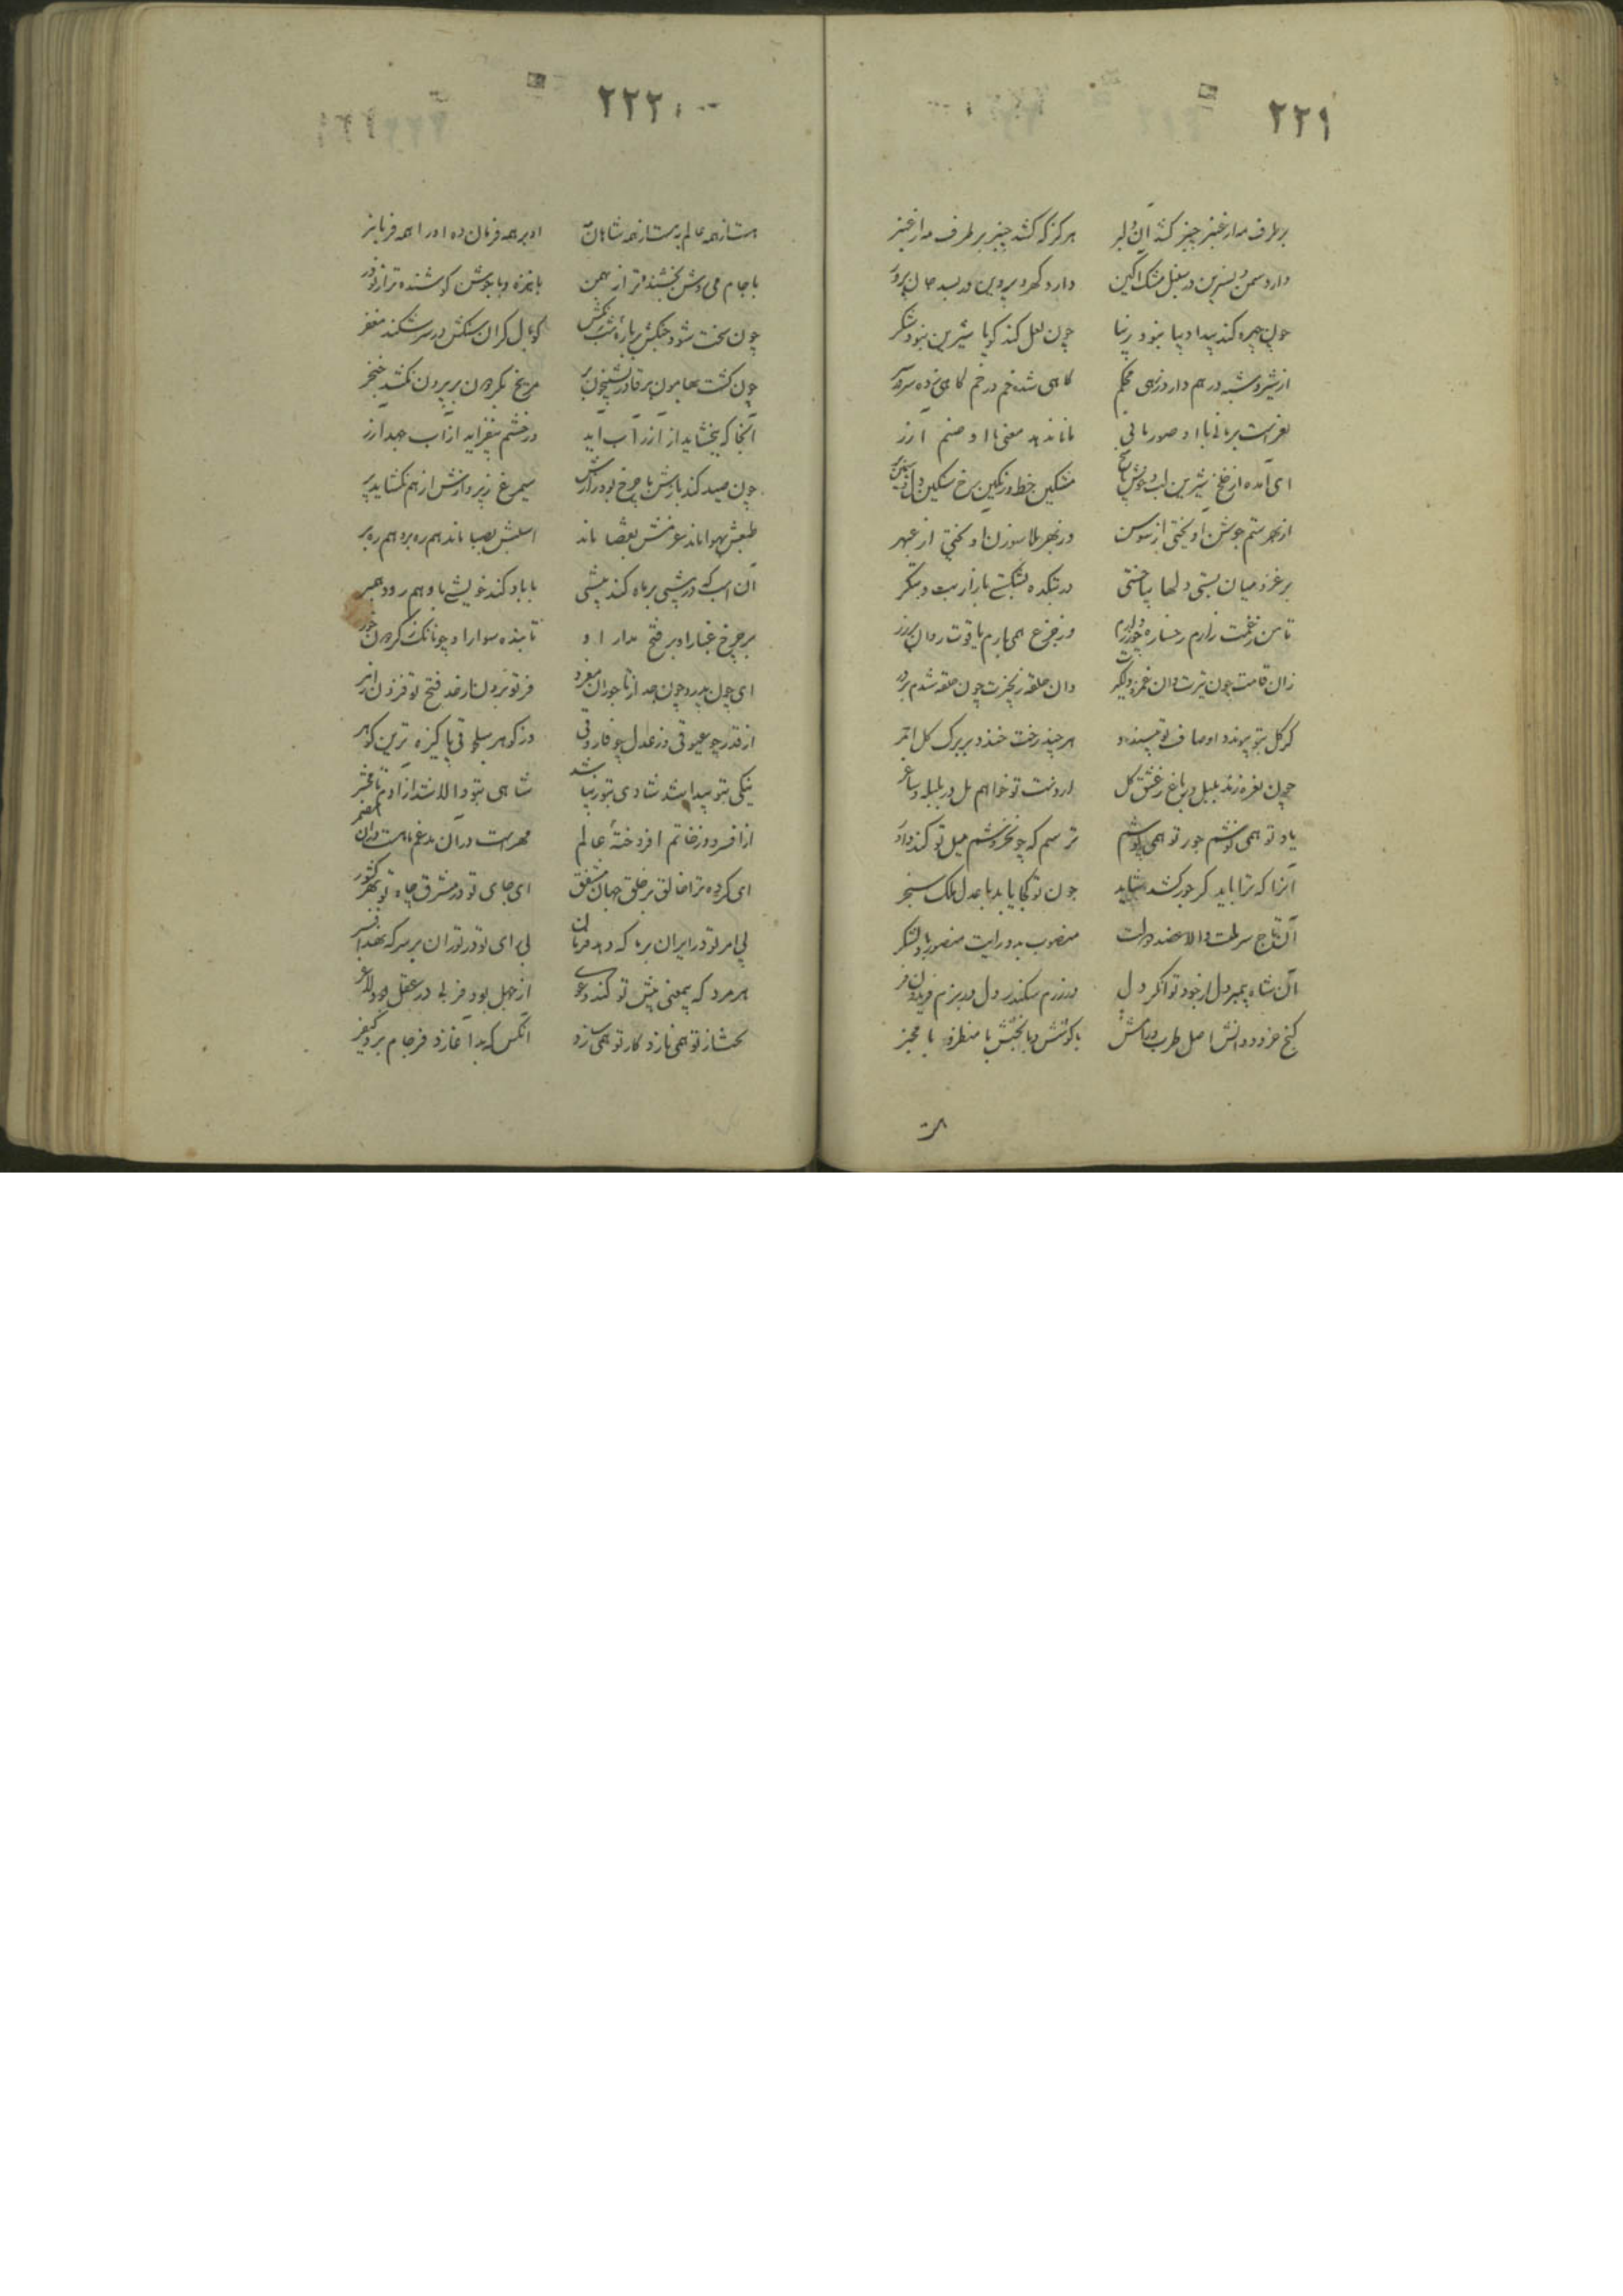 ۲۲۱
بر طرف مه از عنبر چنبر کشد آن دلبر هرکز که کشد چنبر بر طرف مه از عنبر
دارد سمن و نسرین در سنبل مشک آکین دارد کهر و پروین در بسد جان پرور
چون چهره کند پیدا دیبا نبود زیبا چون لعل کند کویا شیرین نبود شکر
از شیر و شبه درهم دارد زرهی محکم کاهی شده خم در خم کاهی زده سر بر
نغز است بر مانی با او صور مانی ماند به معنی با او صنم آزر
ای آمده از خلخ شیرین لب و خوش پاسخ مشکین خط و رنکین رخ سنکین دل
از بهر ستم جوشن آویختی از سوسن وز بهر بلا سوزن آویختی از عبهر
بر غمزه میان بستی دلها بخستی در بتکده بشکستی بازار بت و بتکر
تا من ز غمت زارم رخساره چو زر دارم وز جزع همی بارم یاقوت روان بر زر
زان قامت چون تیرت وان غمزه دلکیرت وان حلقه زنجیرت چون حلقه شدم بر در
کر کل بتو پیوندد اوصاف تو نپسندد هر چند رخت خندد بر برک کل احمر
چون نعره زند بلبل در باغ ز عشق کل از دست تو خواهم مل در بلبله و ساغر
یاد تو همی نوشم جور تو همی پوشم ترسم که چو بخروشم میل تو کند داور
آنرا که ترا باید کر جور کشد شاید چون تو کجا یابد با عدل ملک سنجر
آن تاج سر ملت والا عضد دولت منصوب بدو رایت منصور بدو لشکر
آن شاه پیمبر دل از جود توانکر دل در رزم سکندر دل در بزم فریدون فر
کنج خرد و دانش اصل طرب و رامش با کوشش و با بخشش با منظر و با مخبر
۲۲۲
هست از همه عالم به هست از همه شاهان مه او بر همه فرمان ده او را همه فرمانبر
با جام می روشن بخشنده تر از بهمن با نیزه و با جوشن کوشنده تر از نوذر
چون سخت شود جنکش بر باره شبرنکش کوپال کران سنکش در سر شکند مغفر
چون کشت بهامون بر قادر بشبیخون بر مریخ بکردون بر بیرون نکشد خنجر
آنجا که ببخشاید از آزر آب آید ور خشم بیفزاید از آب جهد آزر
چون صید کند بازش با چرخ بود رازش سیمرغ ز پروازش از هم نکشاید پر
طبعش بهوا ماند عزمش بقضا ماند اسبش بصبا ماند هم ره بر و هم رهبر
آن اسب که در پیشی بر ماه کند پیشی با باد کند خویشی با وهم رود همبر
بر چرخ غبار او بر فتح مدار او تابنده سوار او چونانک ز کردون خور
ای چون پدر و چون جد از تاجوران مفرد فر تو برون از حد فتح تو فزون از مر
از قدر چو عیوقی وز عدل چو فاروقی وز کوهر سلجوقی پاکیزه ترین کوهر
نیکی بتو پیدا شد شادی بتو زیبا شد شاهی بتو والا شد از آدم تا محشر
از افسر و وز خاتم افروخته عالم مهر است در آن مدغم ماه است در آن مضمر
ای کرده ترا خالق بر خلق جهان مشفق ای جای تو در مشرق جاه تو بهر کشور
بی امر تو در ایران بر ما که دهد فرمان بی رای تو در توران بر سر که نهد افسر
هر مرد که بی معنی پیش تو کند دعوی از جهل بود فربه در عقل بود لاغر
بخت از تو همی نازد کار تو همی سازد آنکس که بد آغازد فرجام برد کیفر